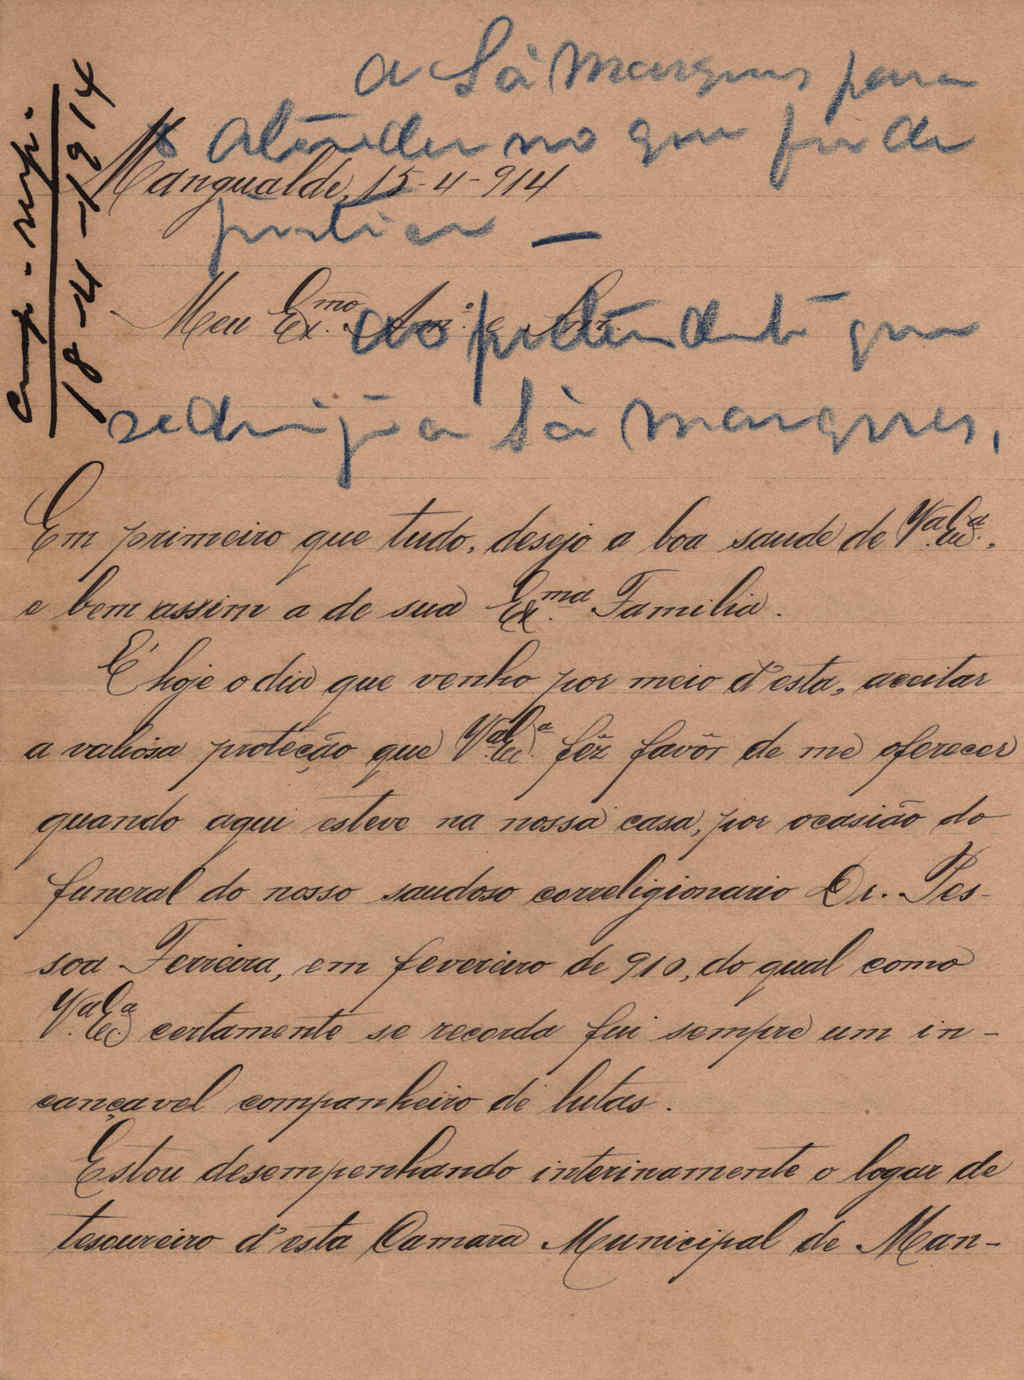 a Sá Marques para
attender no que fôr de
Mangualde, 15-4-914
justiça —
Meu Ex.mo Am.º e Sr.
ao pretendente que
se dirija a Sá Marques,
Cump. resp.
18-4-1914
Em primeiro que tudo, desejo a boa saude de V.a Ex.a,
e bem assim a de sua Ex.ma Familia.
É hoje o dia que venho por meio d'esta, aceitar
a valiosa proteção que V.a Ex.a fêz favôr de me oferecer
quando aqui esteve na nossa casa, por ocasião do
funeral do nosso saudoso correligionario Dr. Pes-
soa Ferreira, em fevereiro de 910, do qual como
V.a Ex.a certamente se recorda fui sempre um in-
cançavel companheiro de lutas.
Estou desempenhando interinamente o logar de
tesoureiro d'esta Camara Municipal de Man-